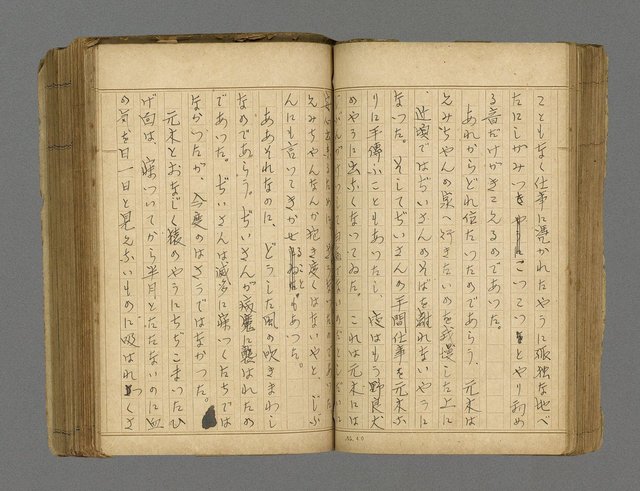 こともなく仕事に憑かれたやうに孤独な地べ
たにしがみついてこつ〳〵とやり初め
る音だけがきこえるのであつた。
あれからどれ位たつたのであらう、元木は
えみちやんの家へ行きたいのを我慢した上に
、近頃ではぢいさんのそばを離れないやうに
なつた。そしてぢいさんの手間仕事を元木が
りに手傳ふこともあつたし、夜はもう野良犬
のやうに出なくなつてゐた。これは元木には
えみちやんなんか抱き度くはないやと、じぶ
んにも言いてきかせることもあつた。
ああそれなのに、どうした風の吹きまわし
なのであらう、ぢいさんが病魔に襲はれたの
であつた。ぢいさんは滅多に寝つくたちでは
なかつたが、今度のはさうではなかつた。
元木とおなじく猿のやうにちぢこまつたひ
げ面は、寝ついてから半月とたたないのに血
の氣を日一日と見えないものに吸はれつくさ
No. 40